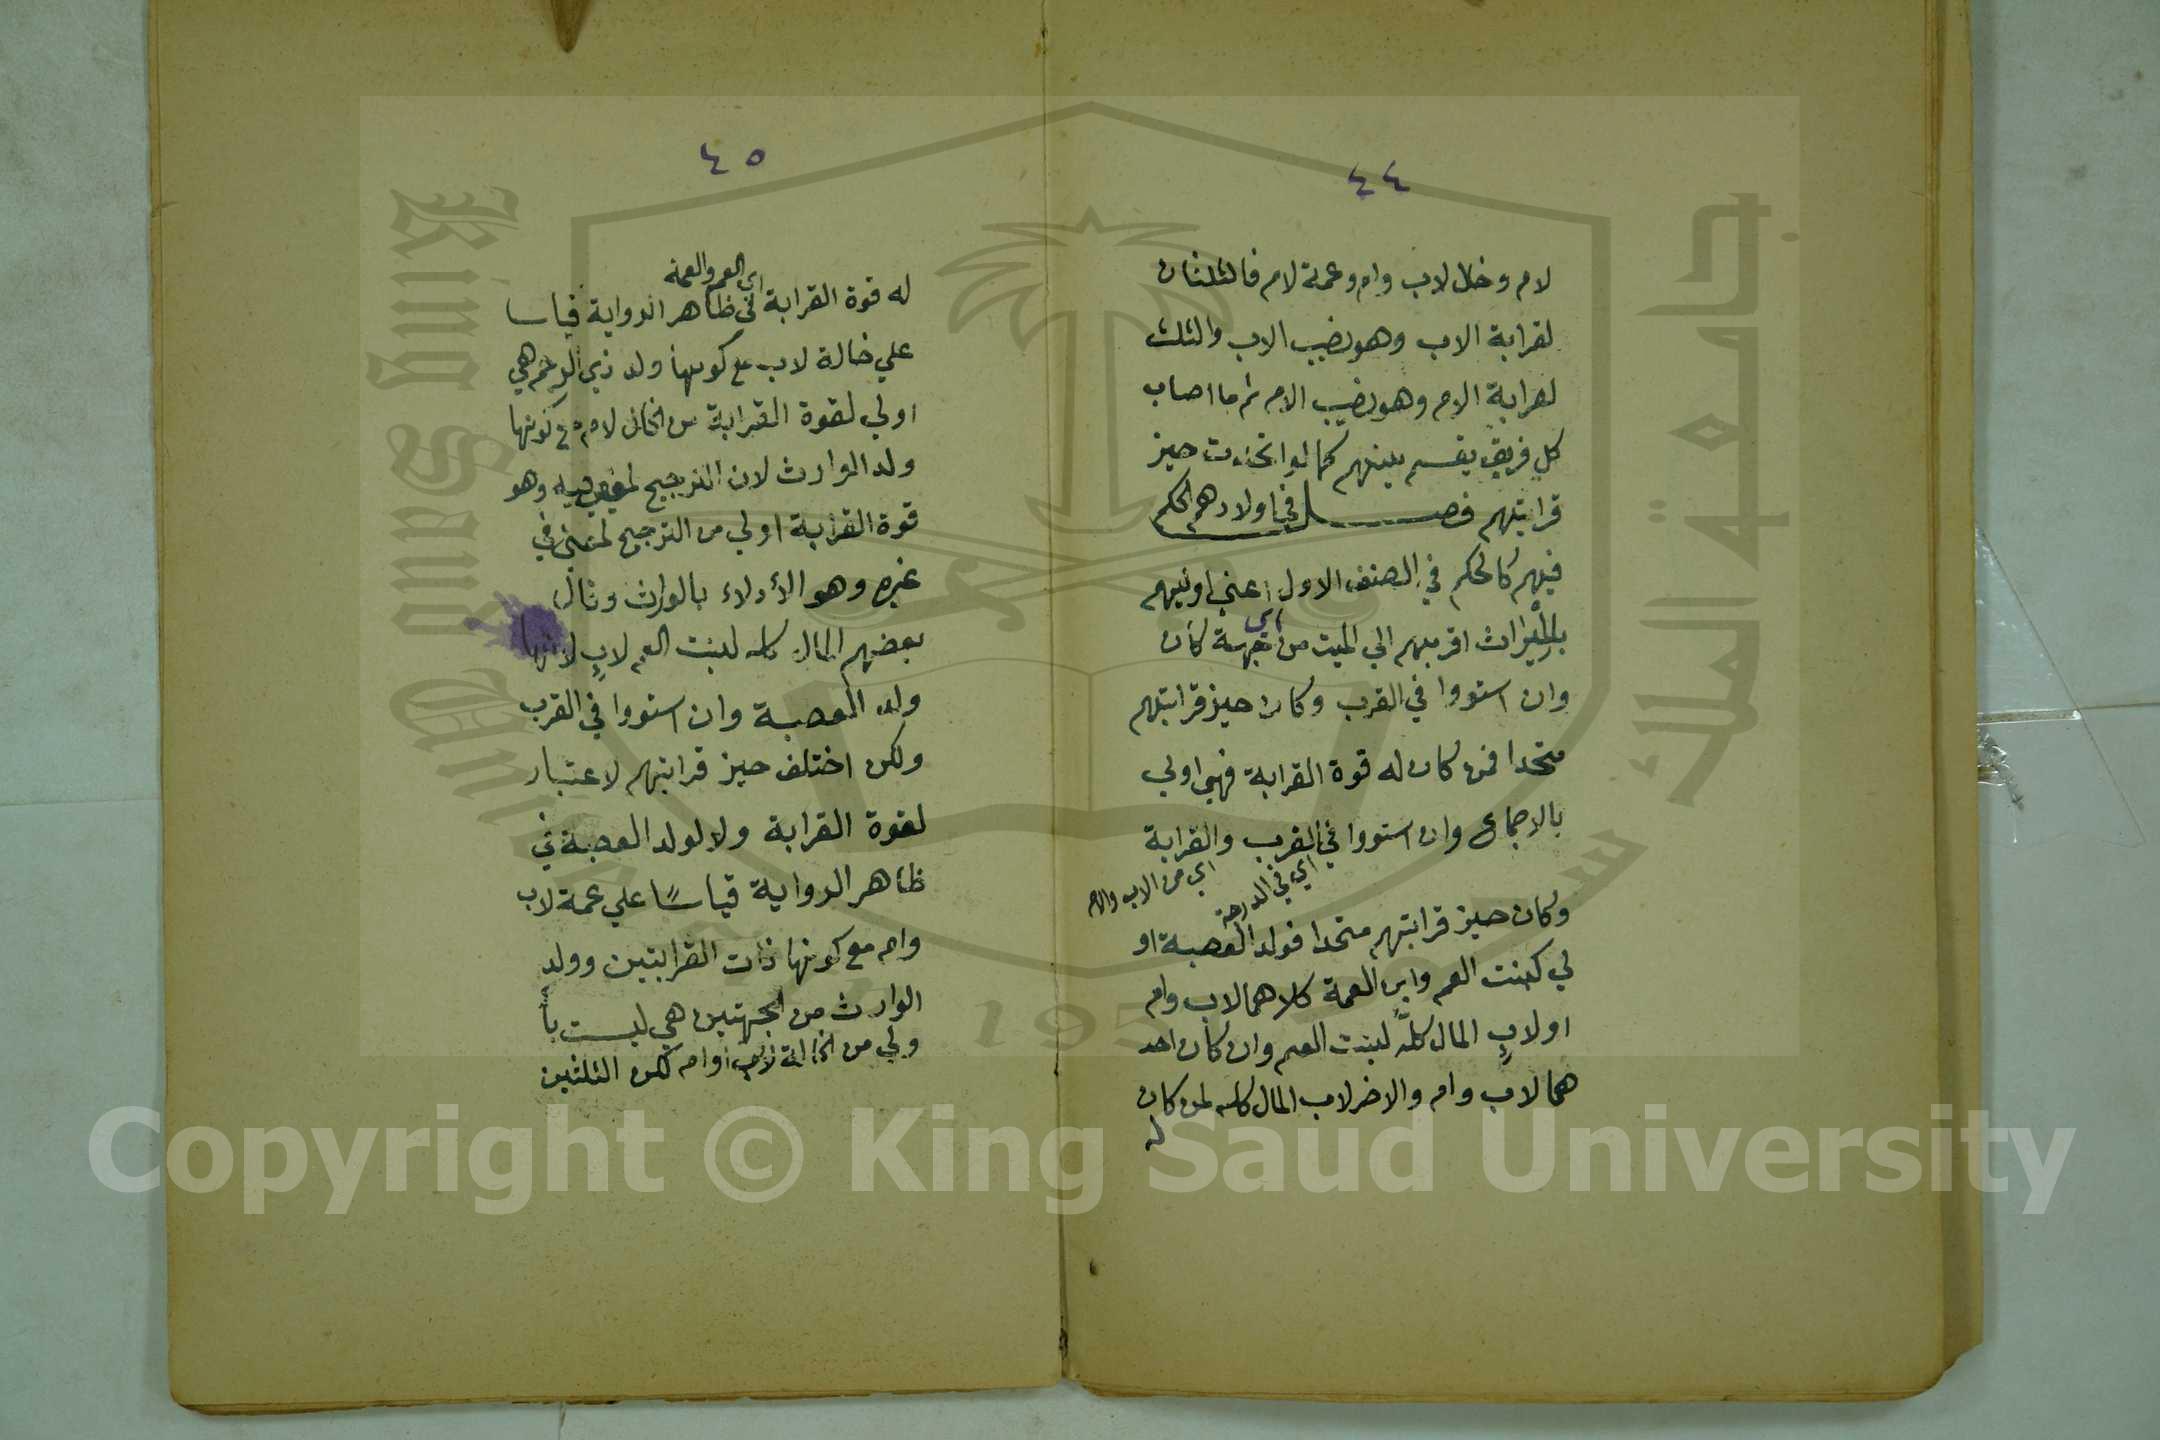 ٤٤
لام وخال لاب وام وعمة لام فالثلثان
لقرابة الاب وهو نصيب الاب والثلث
لقرابة الام وهو نصيب الام ثم ما اصاب
كل فريق يقسم بينهم كما لو اتحدت حيز
قرابتهم فصل في اولادهم الحكم
فيهم كالحكم في الصنف الاول اعني اوليهم
بالميراث اقربهم الي الميت من اي جهة كان
وان استووا في القرب وكان حيز قرابتهم
متحدا فمن كان له قوة القرابة فهي اولي
بالاجماع وان استووا في القرب والقرابة
اي في الدرجة
اي من الاب والام
وكان حيز قرابتهم متحدا فولد العصبة او
لي كبنت العم وابن العمة كلاهما لاب وام
او لاب المال كله لبنت العم وان كان احد
هما لاب وام والاخر لاب المال كله لمن كان
له
٤٥
اي العم والعمة
له قوة القرابة في ظاهر الرواية قياسا
علي خالة لاب مع كونها ولد ذي الرحم هي
اولي لقوة القرابة من الخالة لام مع كونها
ولد الوارث لان الترجيح لمعني فيه وهو
قوة القرابة اولي من الترجيح لمعني في
غيره وهو الأدلاء بالوارث وقال
بعضهم المال كله لبنت العم لاب لانها
ولد العصبة وان استووا في القرب
ولكن اختلف حيز قرابتهم لا عتبار
لقوة القرابة ولا لولد العصبة في
ظاهر الرواية قياسًا علي عمة لاب
وام مع كونها ذات القرابتين وولد
الوارث من الجهتين هي ليست بأ
ولي من الخالة لاب او ام لكن الثلثين
Copyright © King Saud University
King Saud University
جامعة الملك سعود
195